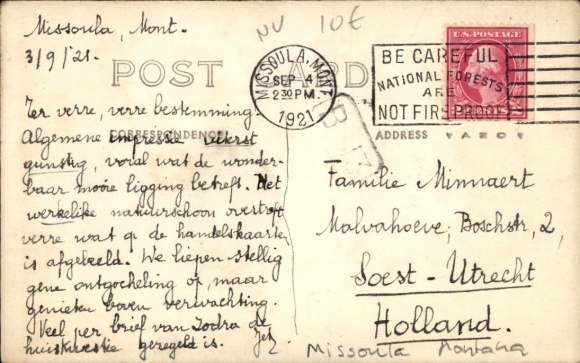 Missoula, Mont.
3/9/'21.
NV 10€
POST CARD
MISSOULA, MONT.
SEP 4
2 30 PM.
1921
U.S. POSTAGE
BE CAREFUL
NATIONAL FORESTS
ARE
NOT FIREPROOF
CORRESPONDENCE
ADDRESS
Ter verre, verre bestemming.
Algemene impressie uiterst
gunstig, vooral wat de wonder-
baar mooie ligging betreft. Het
werkelike natuurschoon overtreft
verre wat op de handelskaarten
is afgebeeld. We liepen stellig
gene ontgocheling op, maar
genieten boven verwachting.
Veel per brief van zodra de
huiskwestie geregeld is.
Familie Minnaert
Malvahoeve; Boschstr, 2,
Soest - Utrecht
Holland.
Missoula Montana